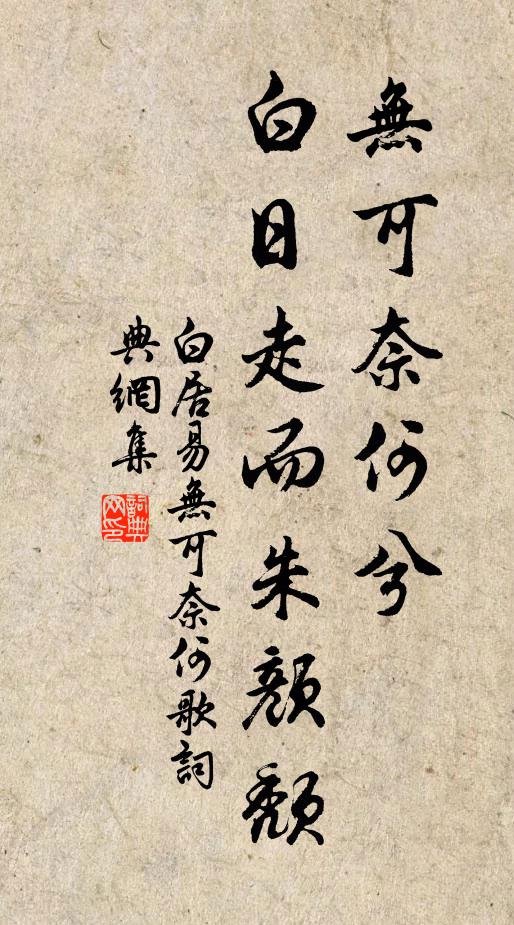 無可奈何兮
白日走而朱顔頹
白居易無可奈何歌詞
典網集
詞典网印